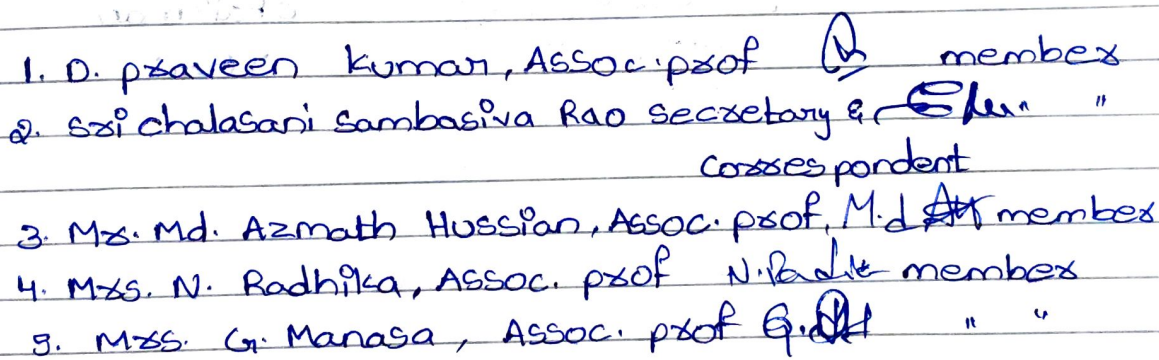 1. D. praveen kumar, Assoc. prof member
2. Sri chalasani Sambasiva Rao Secretary & "
Correspondent
3. Mr. Md. Azmath Hussian, Assoc. prof, M.d member
4. Mrs. N. Radhika, Assoc. prof member
5. Mrs. G. Manasa, Assoc. prof " "